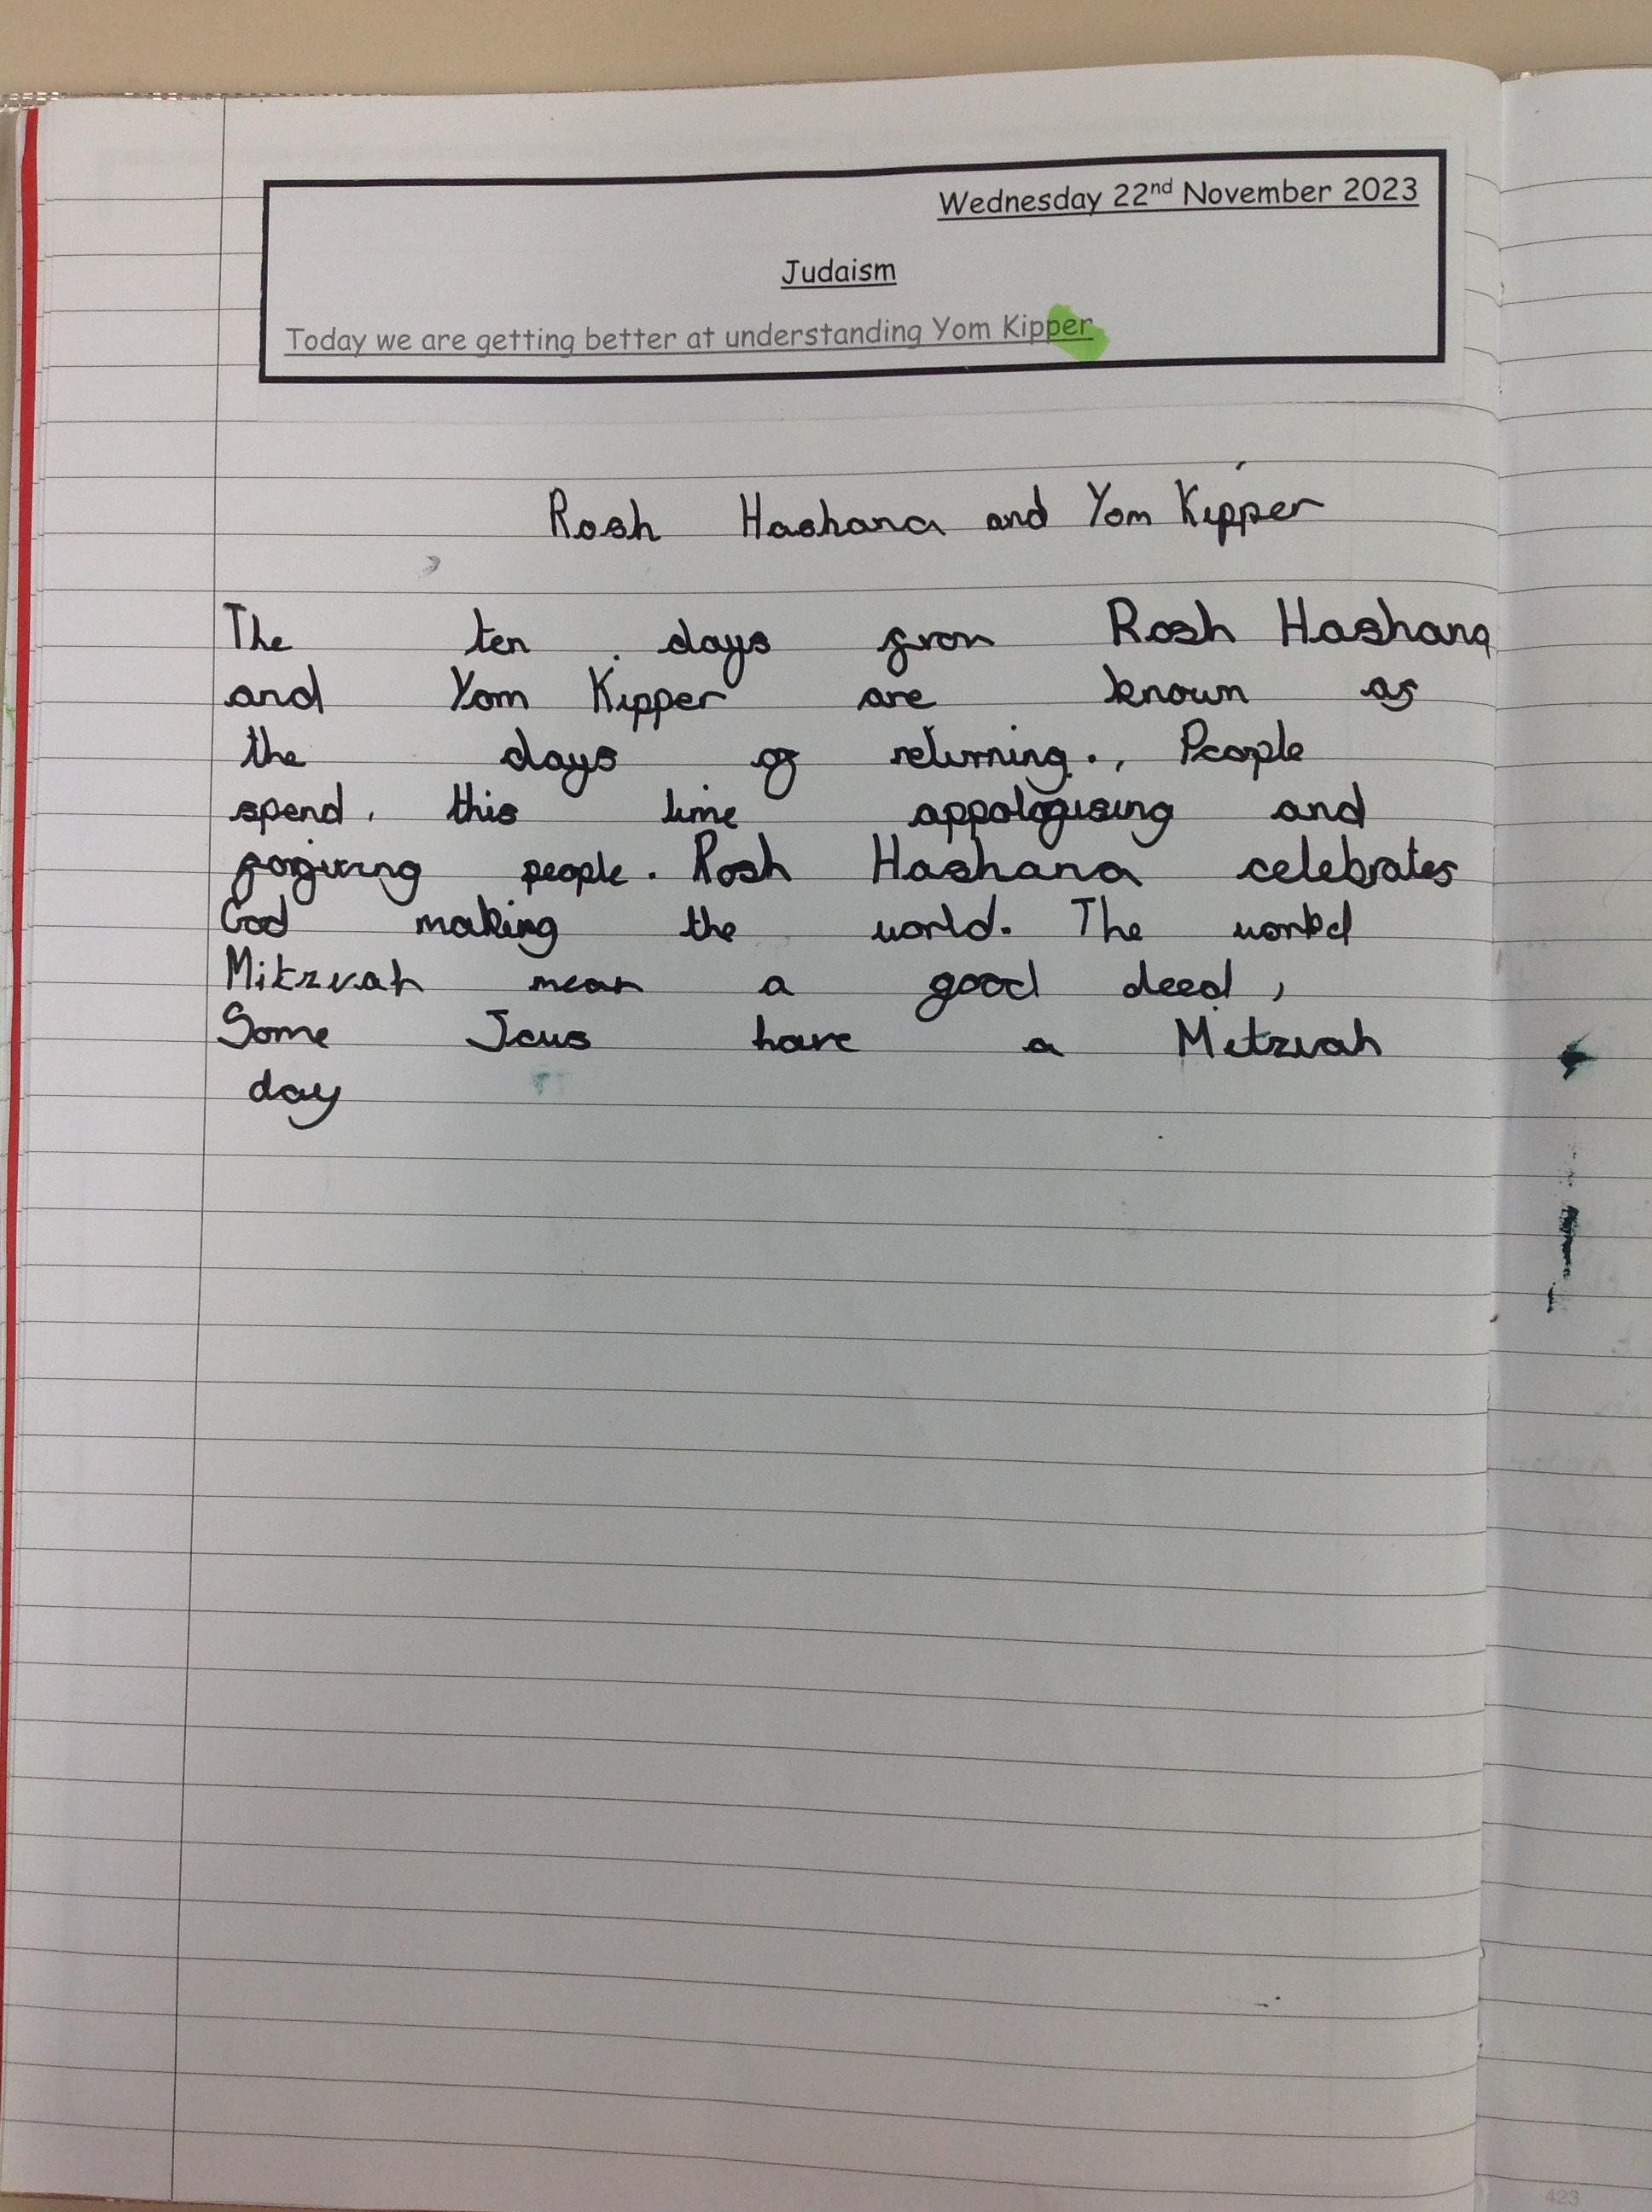 Wednesday 22nd November 2023
Judaism
Today we are getting better at understanding Yom Kipper
Rosh Hashana and Yom Kipper
The ten days from Rosh Hashana
and Yom Kipper are known as
the days of returning., People
spend this time appologising and
forgiving people. Rosh Hashana celebrates
God making the world. The
Mitzvah mean a good deed,
Some Jews have a Mitzvah
day
423